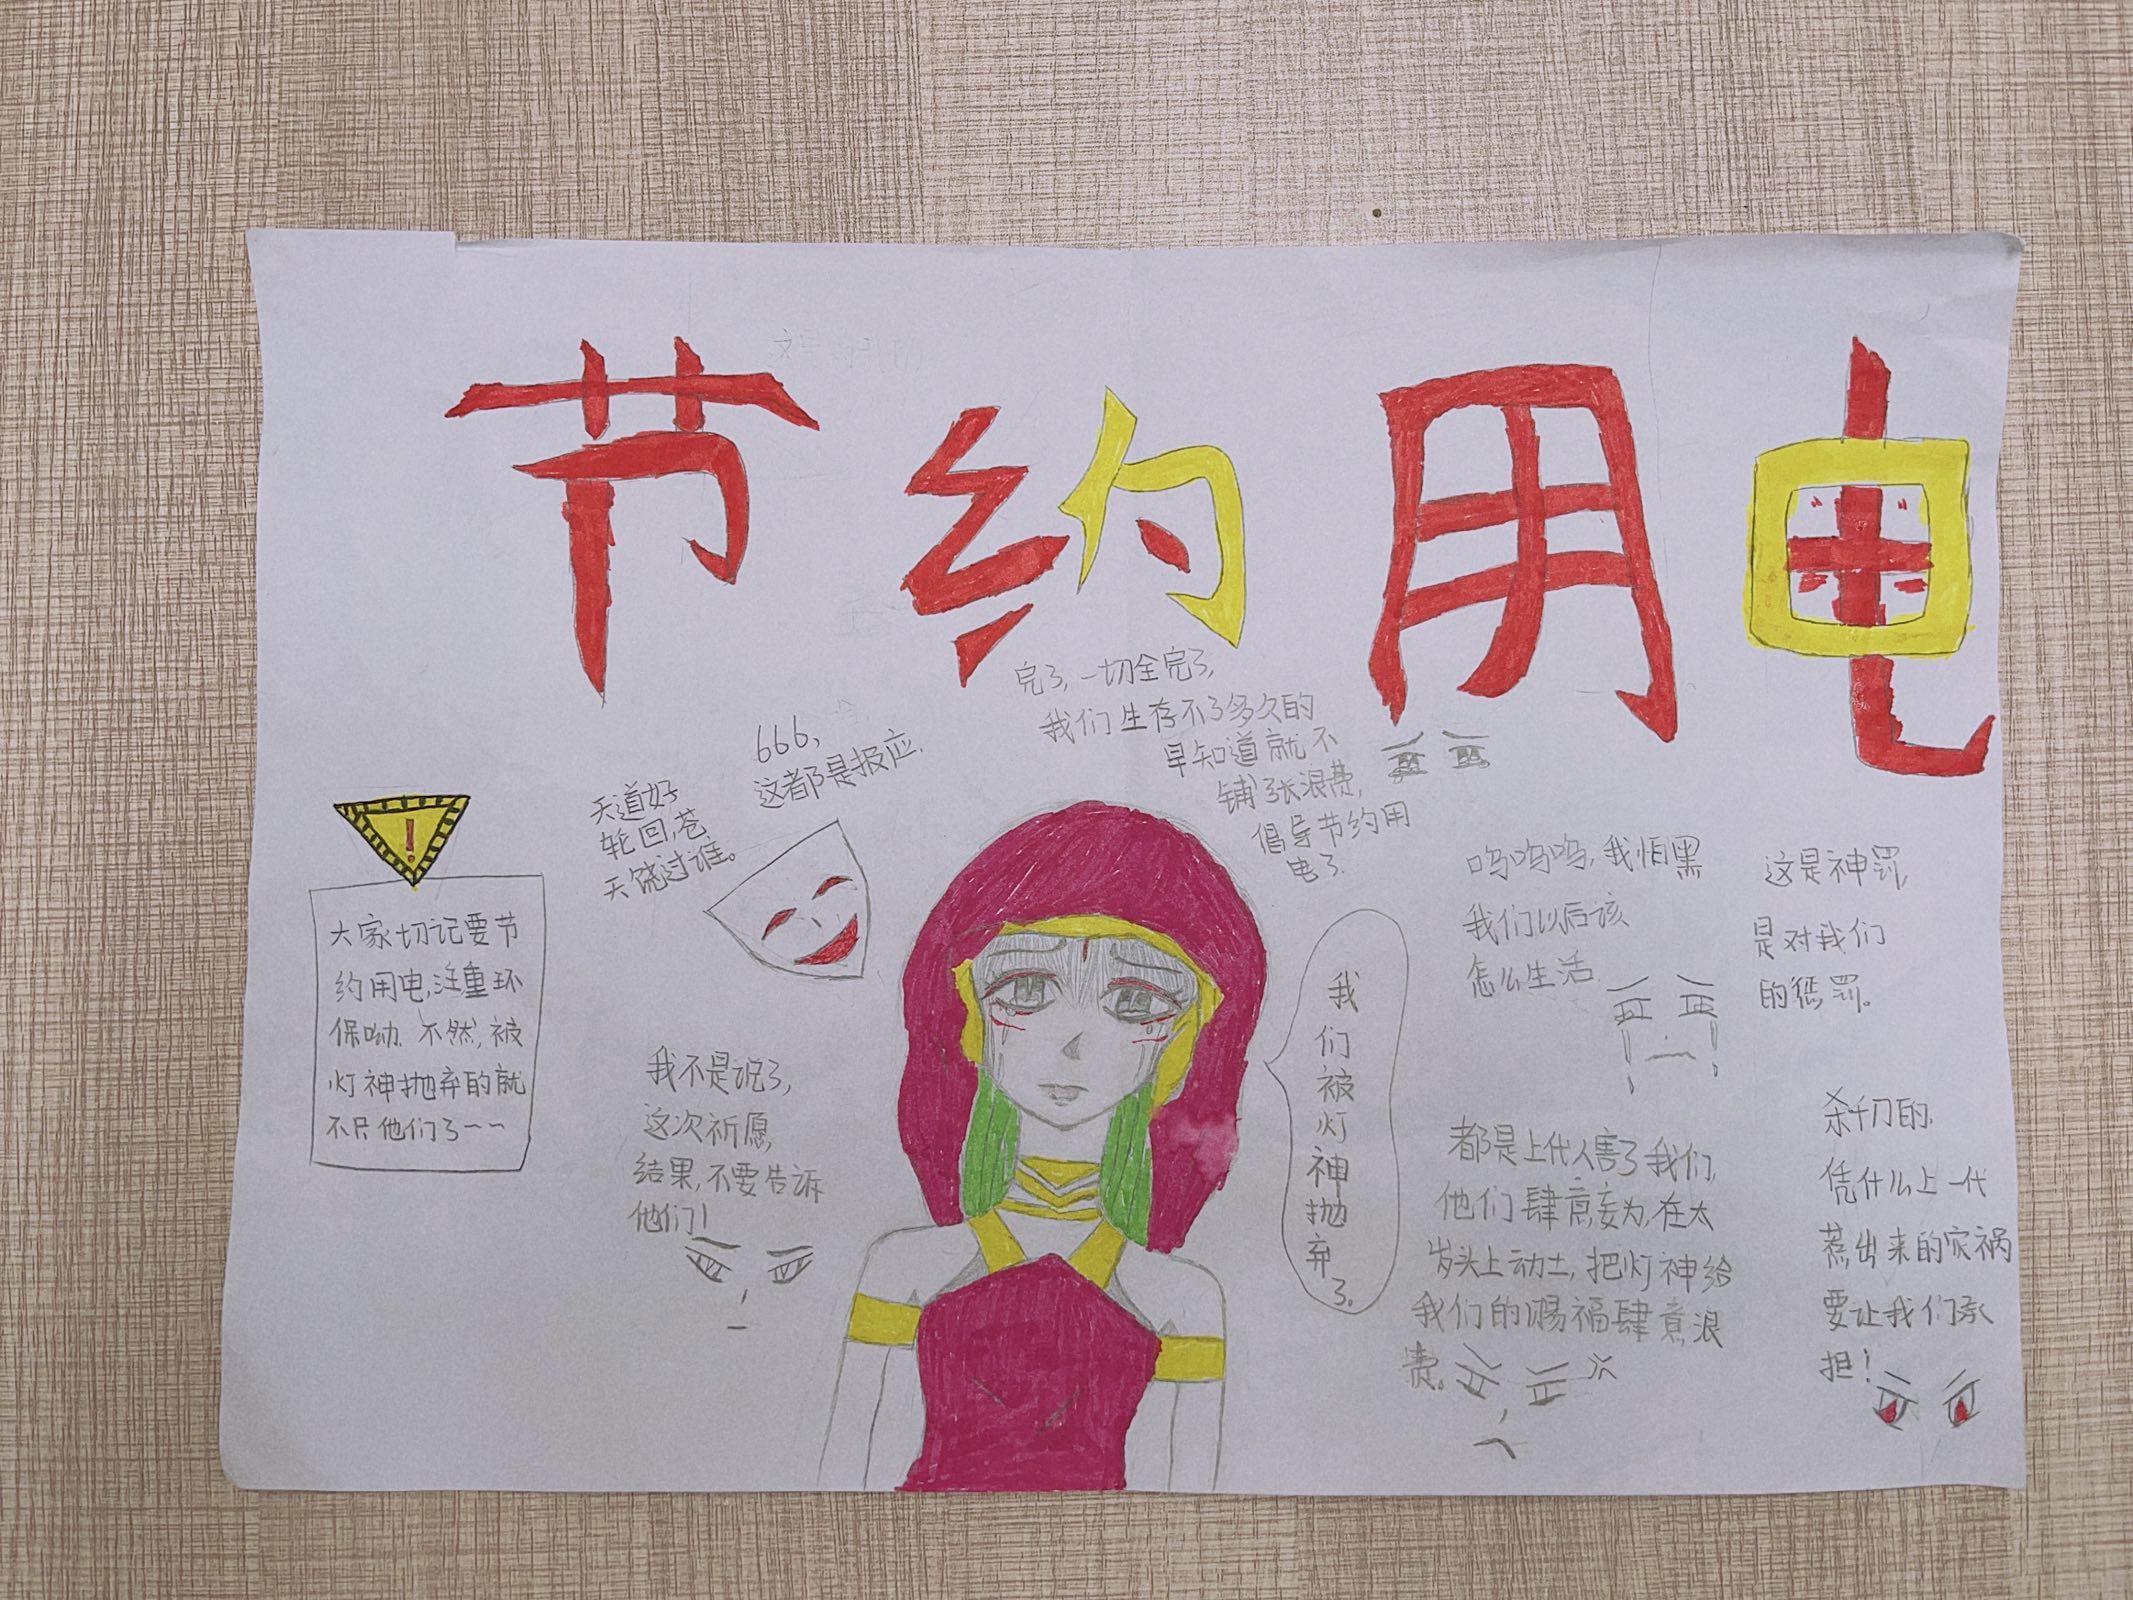 节约用电
完了,一切全完了,
我们生存不了多久的
早知道就不
铺张浪费,
倡导节约用
电了.
666,
这都是报应.
天道好
轮回,苍
天饶过谁。
!
大家切记要节
约用电,注重环
保呦.不然,被
灯神抛弃的就
不只他们了~~
我不是说了,
这次祈愿,
结果,不要告诉
他们!
我们被灯神抛弃了。
呜呜呜,我怕黑
我们以后该
怎么生活.
这是神罚,
是对我们
的惩罚。
都是上代人害了我们,
他们肆意妄为,在太
岁头上动土,把灯神给
我们的赐福肆意浪
费。
杀千刀的.
凭什么上一代
惹出来的灾祸
要让我们承
担!